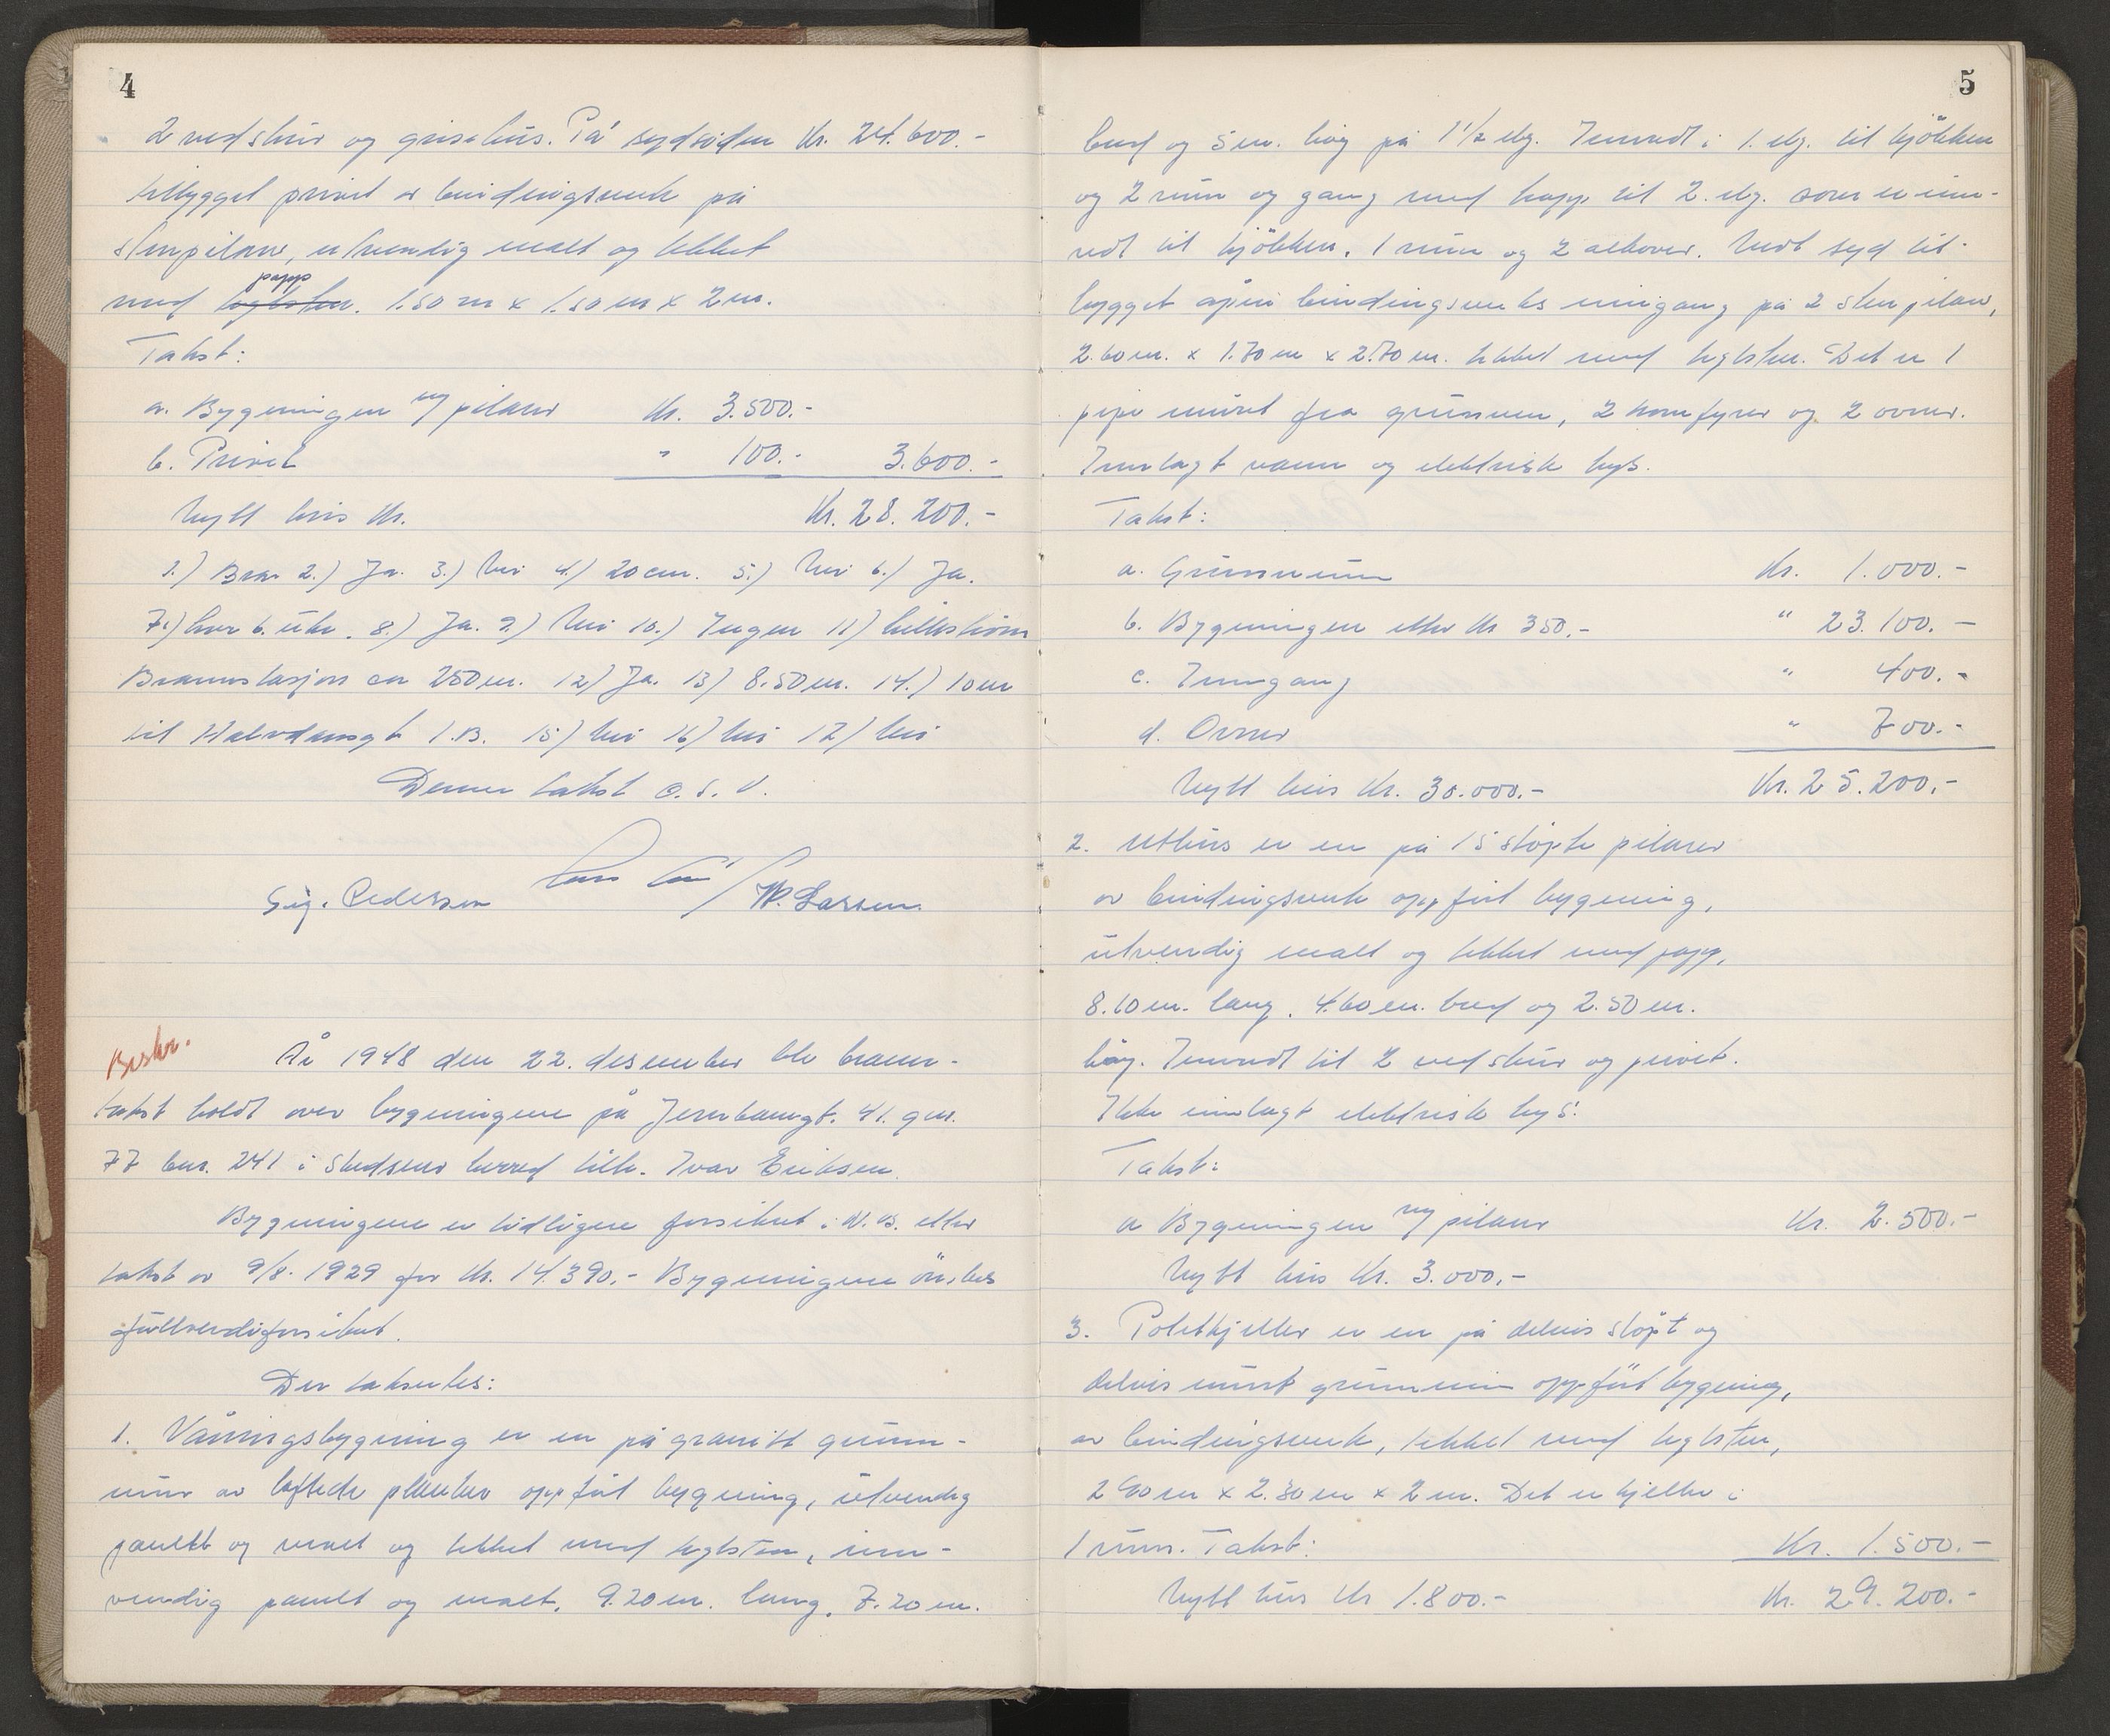 4
2 vedskur og grisehus. På sydsiden Kr. 24.600.-
tilbygget privet av bindingsverk på
stenpilarer, utvendig malt og tekket
papp
med teglsten. 1.50 m x 1.50 m x 2 m.
Takst:
a. Bygningen m/ pilarer Kr. 3.500.-
b. Privet " 100.- 3.600.-
Nytt hus Kr. Kr. 28.200.-
1.) Bra 2.) Ja. 3.) Nei 4.) 20 cm. 5.) Nei 6.) Ja.
7.) hver 6. uke. 8.) Ja. 9.) Nei 10.) Ingen 11)
Brannstasjon ca 250 m. 12) Ja. 13) 8.50 m. 14.) 10 m
til Halvdansgt 1.B. 15) Nei 16) Nei 17) Nei
Denne takst o.s.v.
Sig. Pedersen W. Larsen.
Beskr.
År 1948 den 22. desember ble brann-
takst holdt over bygningene på Jernbanegt. 41. gnr.
77 bnr. 241 i Skedsmo herred tilh. Ivar Eriksen.
Bygningene er tidligere forsikret i N.B. etter
takst av 9/8. 1929 for Kr. 14.390.- Bygningene önskes
fullverdiforsikret.
Der takseres:
1. Våningsbygning er en på granitt grunn-
mur av laftede planker oppfört bygning, utvendig
panelt og malt og tekket med teglsten, inn-
vendig panelt og malt. 9.20 m. lang, 7.20 m.
5
bred og 5 m. höy på 1 1/2 etg. Innredt i 1. etg. til kjökken
og 2 rum og gang med trapp til 2. etg. som er inn-
redt til kjökken, 1 rum og 2 alkover. Mot syd til-
bygget åpen bindingsverks inngang på 2 stenpilarer,
2.60 m. x 1.70 m x 2.70 m. tekket med teglsten. Det er 1
pipe muret fra grunnen, 2 komfyrer og 2 ovner.
Innlagt vann og elektrisk lys.
Takst:
a. Grunnmur Kr. 1.000.-
b. Bygningen etter Kr 350.- " 23.100.-
c. Inngang " 400.-
d. Ovner " 700.-
Nytt hus Kr. 30.000.- Kr. 25.200.-
2. Uthus er en på 15 stöpte pilarer
av bindingsverk oppfört bygning,
utvendig malt og tekket med papp,
8.10 m. lang, 4.60 m. bred og 2.50 m.
höy. Innredt til 2 vedskur og privet.
Ikke innlagt elektrisk lys.
Takst:
a Bygningen m/ pilarer Kr. 2.500.-
Nytt hus Kr. 3.000.-
3. Potetkjeller er en på delvis stöpt og
delvis muret grunnmur oppfört bygning,
av bindingsverk, tekket med teglsten,
2.90 m x 2.30 m x 2 m. Det er kjeller i
1 rum. Takst: Kr. 1.500.-
Nytt hus Kr 1.800.- Kr. 29.200.-